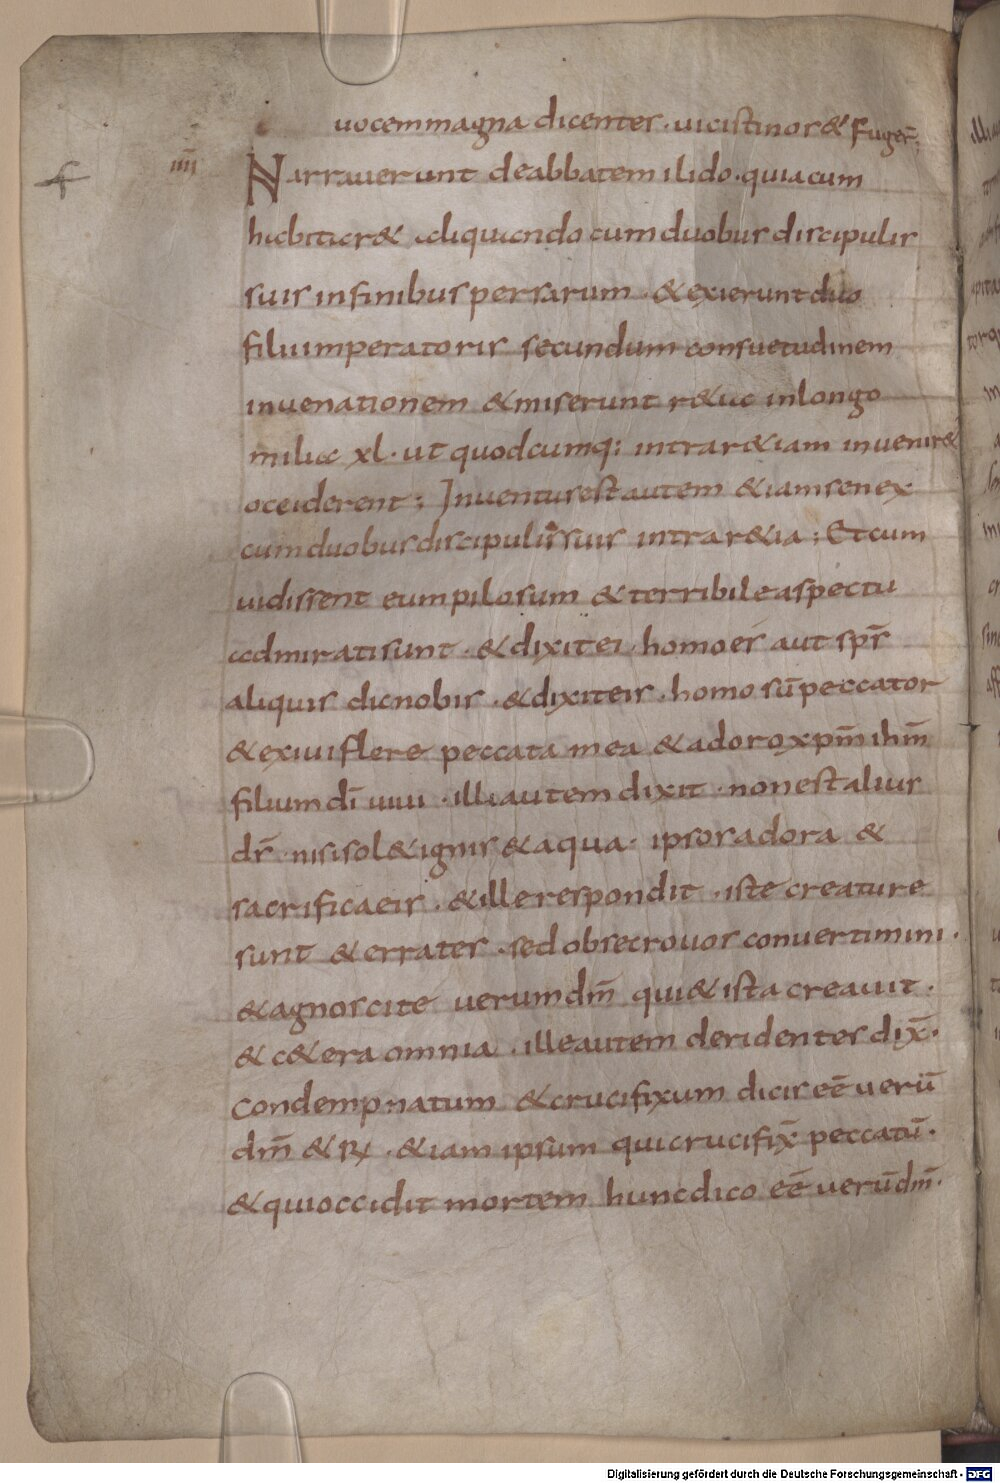 uocem magna dicentes · uicisti nos & fuger̄;
IIII
Narrauerunt de abbatem ilido · quia cum
habitar& aliquando cum duobus discipulis
suis in finibus persarum · & exierunt duo
filii imperatoris secundum consuetudinem
in uenationem & miserunt r&ia in longo
milia xl · ut quodcumq; intrar& iam inuenir&
occiderent; Inuentus est autem & iam senex
cum duobus discipulis suis intrar&ia; Et cum
uidissent eum pilosum & terribile aspectu
admirati sunt · & dixit ei · homo es aut sp̄s
aliquis dic nobis · & dixit eis · homo sū peccator
& exiui flere peccata mea & adoro xp̄m ih̄m
filium dī uiui · illi autem dixit · non est alius
d̄s · nisi sol & ignis & aqua · ipsos adora &
sacrifica eis · & ille respondit · iste creature
sunt & errates · sed obsecro uos conuertimini ·
& agnoscite uerum dm̄ qui & ista creauit ·
& c&era omnia · ille autem deridentes dix̄ ·
condempnatum & crucifixum dicis eē uerū
dm̄ & R/ · & iam ipsum qui crucifix̄ peccatū ·
& qui occidit mortem hunc dico eē uerū dm̄ ·
Digitalisierung gefördert durch die Deutsche Forschungsgemeinschaft - DFG